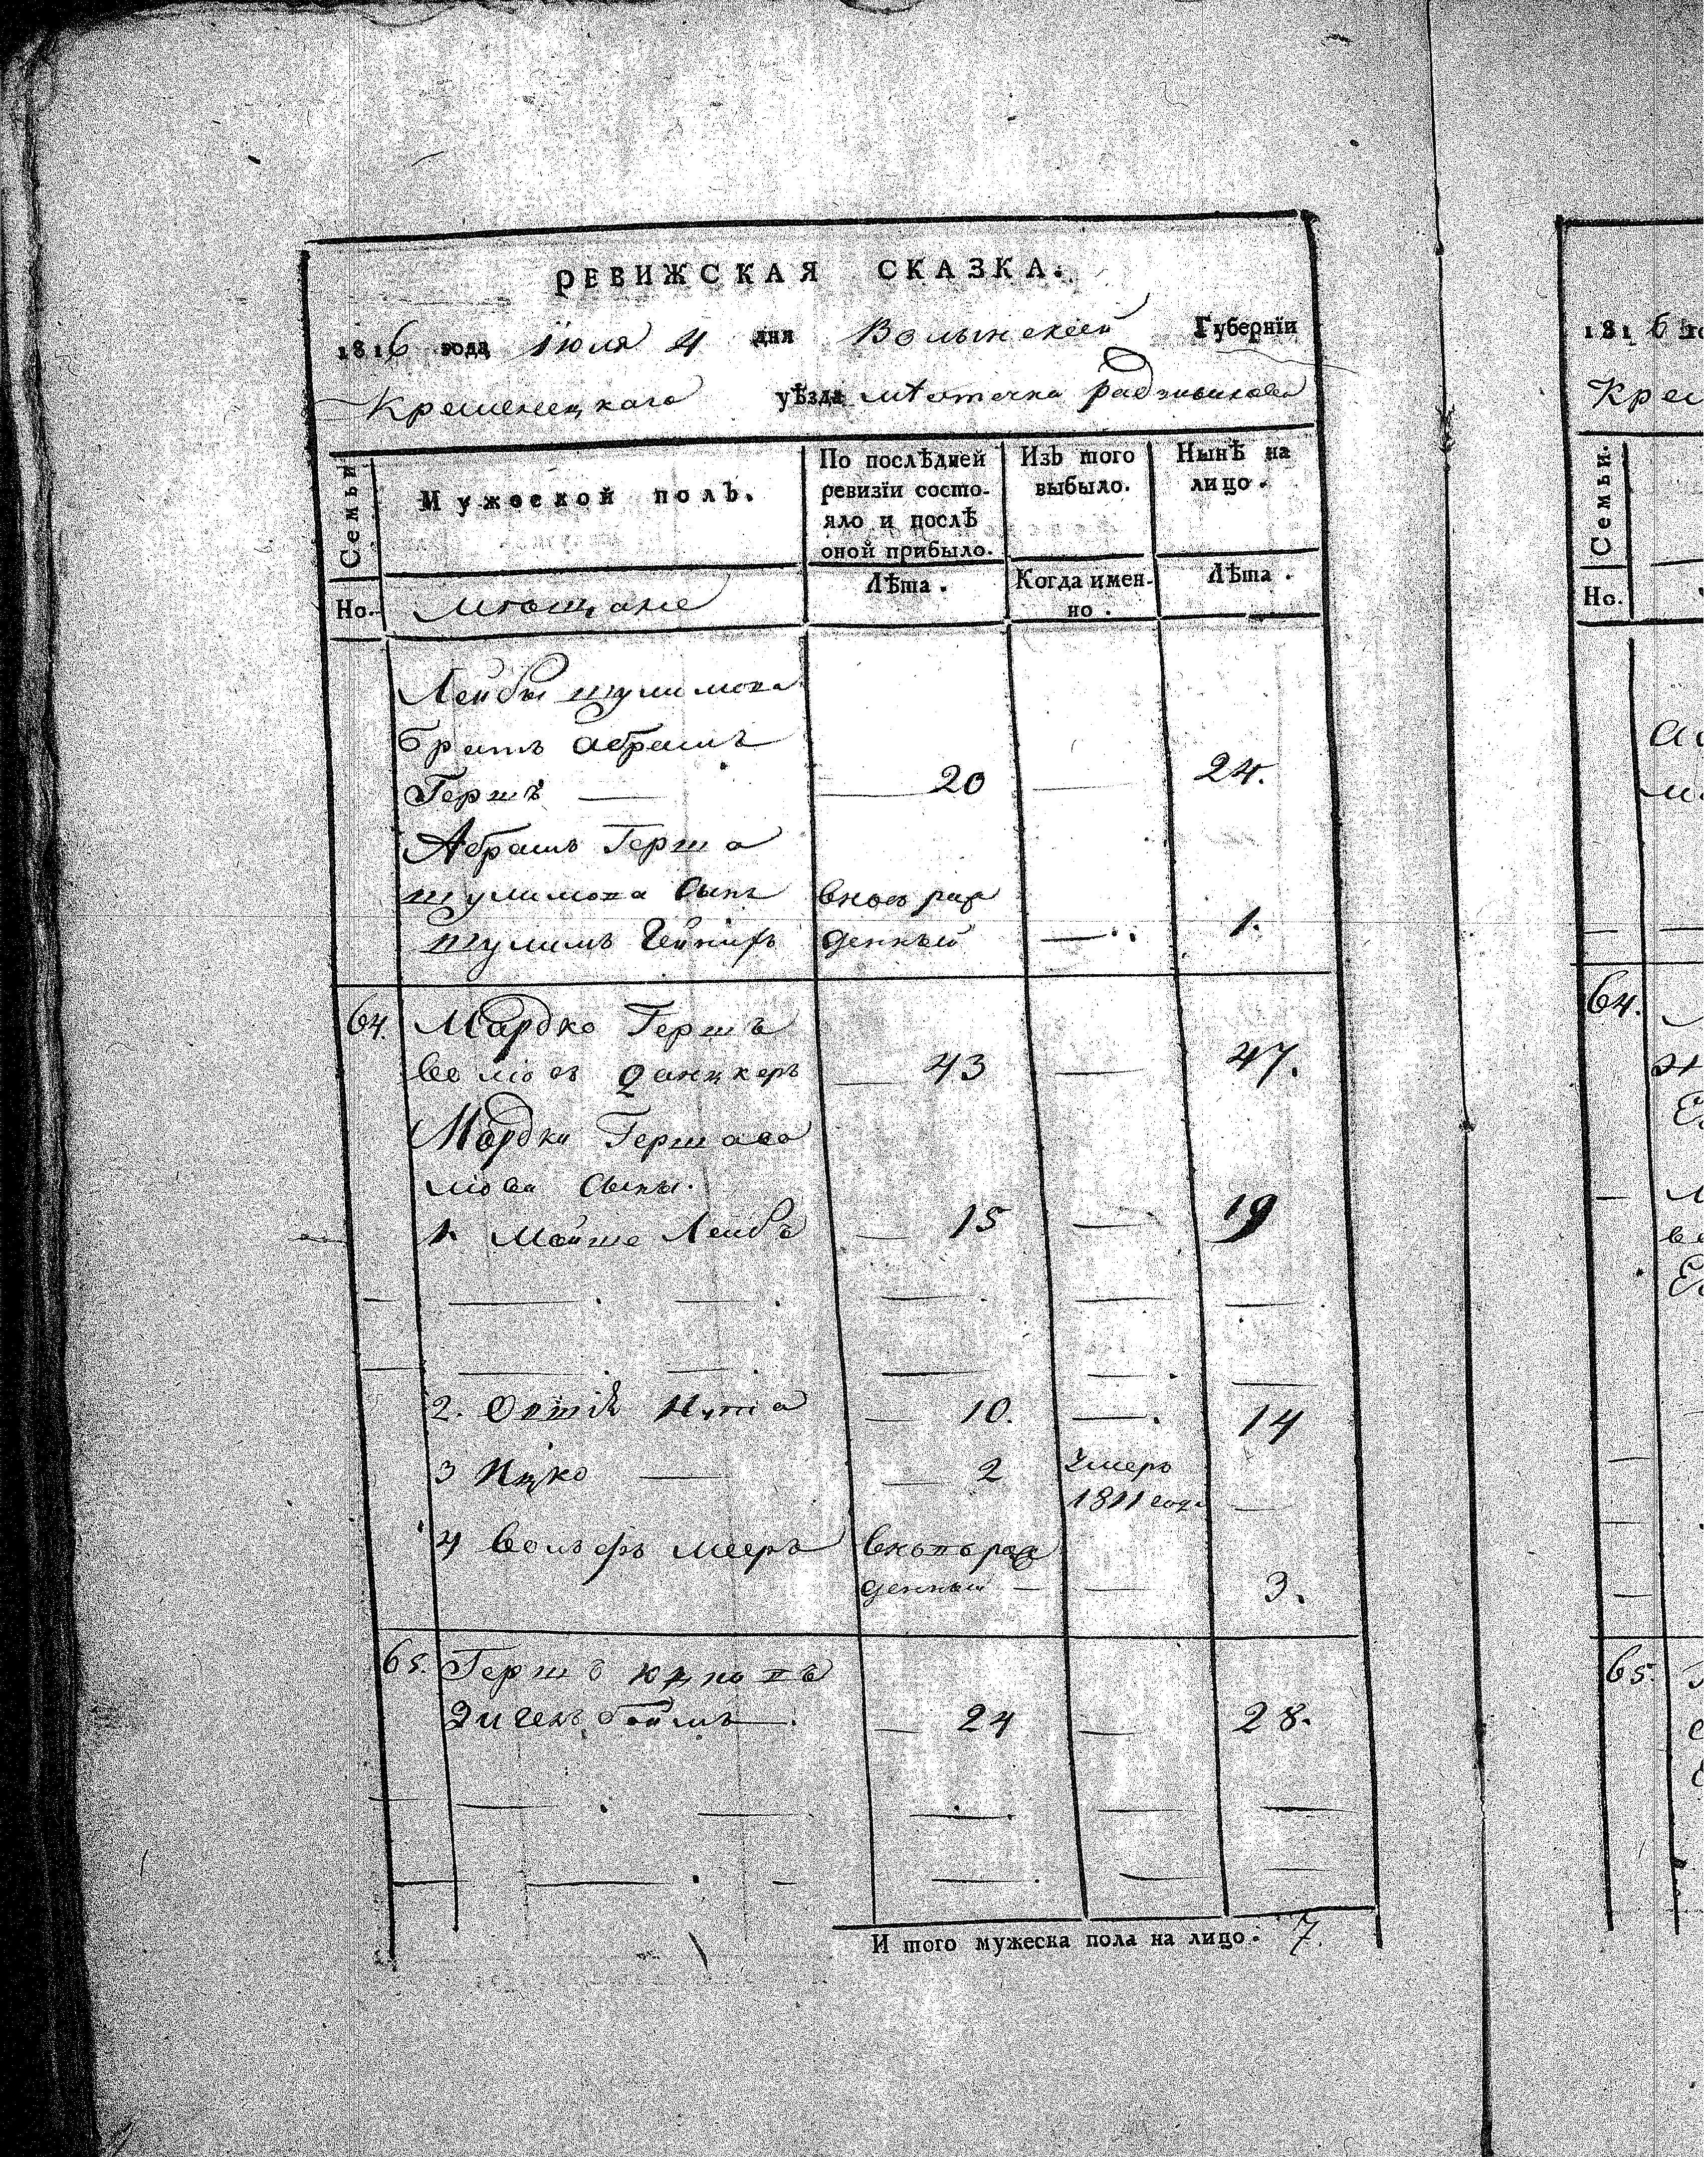 РЕВИЖСКАЯ СКАЗКА.
1816 года Июля 4 дня Волынской Губернїи
Кременецкаго уѣзда мѣстечка Радзивилова
Семьи
Мужеской полъ.
По послѣдней ревизїи состо-
яло и послѣ
оной прибыло.
Изъ того выбыло.
Нынѣ на лицо.
Но.
мѣщане
Лѣта.
Когда имен-
но.
Лѣта.
Лейбы Шулимова
братъ Абрамъ
Гершъ — 20 — 24.
Абрамъ Герша
Шулимова сынъ вновь раж
Шулимъ денный — 1.
64. Мардко Гершъ
Данцкеръ — 43 — 47.
Мордки Гершово
сыны.
1. Мойше Лейбъ — 15 — 19
2. — 10. — 14
3 Ицко — 2 умеръ
1811 года —
4 Вольфъ Мееръ вновь раж
денный — — 3.
65. Гершъ
— 24 — 28.
И того мужеска пола на лицо. 7.
1816
Крем
Семьи.
Но.
64.
65.